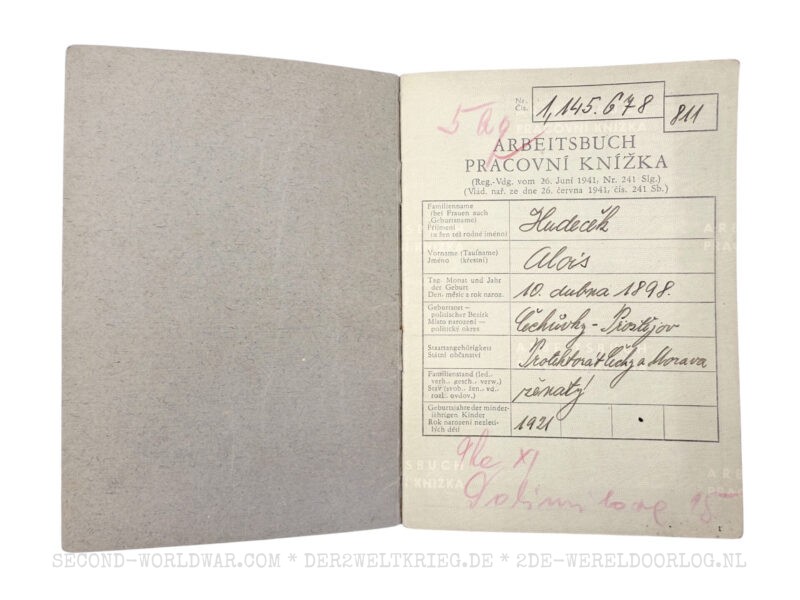 Nr.
Čís.
1,145.678
811
ARBEITSBUCH
PRACOVNÍ KNÍŽKA
(Reg.-Vdg. vom 26. Juni 1941, Nr. 241 Slg.)
(Vlád. nař. ze dne 26. června 1941, čís. 241 Sb.)
Familienname
(bei Frauen auch
Geburtsname)
Příjmení
(u žen též rodné jméno)
Hudeček
Vorname (Taufname)
Jméno (křestní)
Alois
Tag, Monat und Jahr
der Geburt
Den, měsíc a rok naroz.
10. dubna 1898.
Geburtsort —
politischer Bezirk
Místo narození —
politický okres
Čechůvky - Prostějov
Staatsangehörigkeit
Státní občanství
Protektorát Čechy a Morava
Familienstand (led.,
verh., gesch., verw.)
Stav (svob., žen., vd.,
rozl., ovdov.)
ženatý
Geburtsjahre der minder-
jährigen Kinder
Rok narození nezleti-
lých dětí
1921
XI
1
SECOND-WORLDWAR.COM * DER2WELTKRIEG.DE * 2DE-WERELDOORLOG.NL